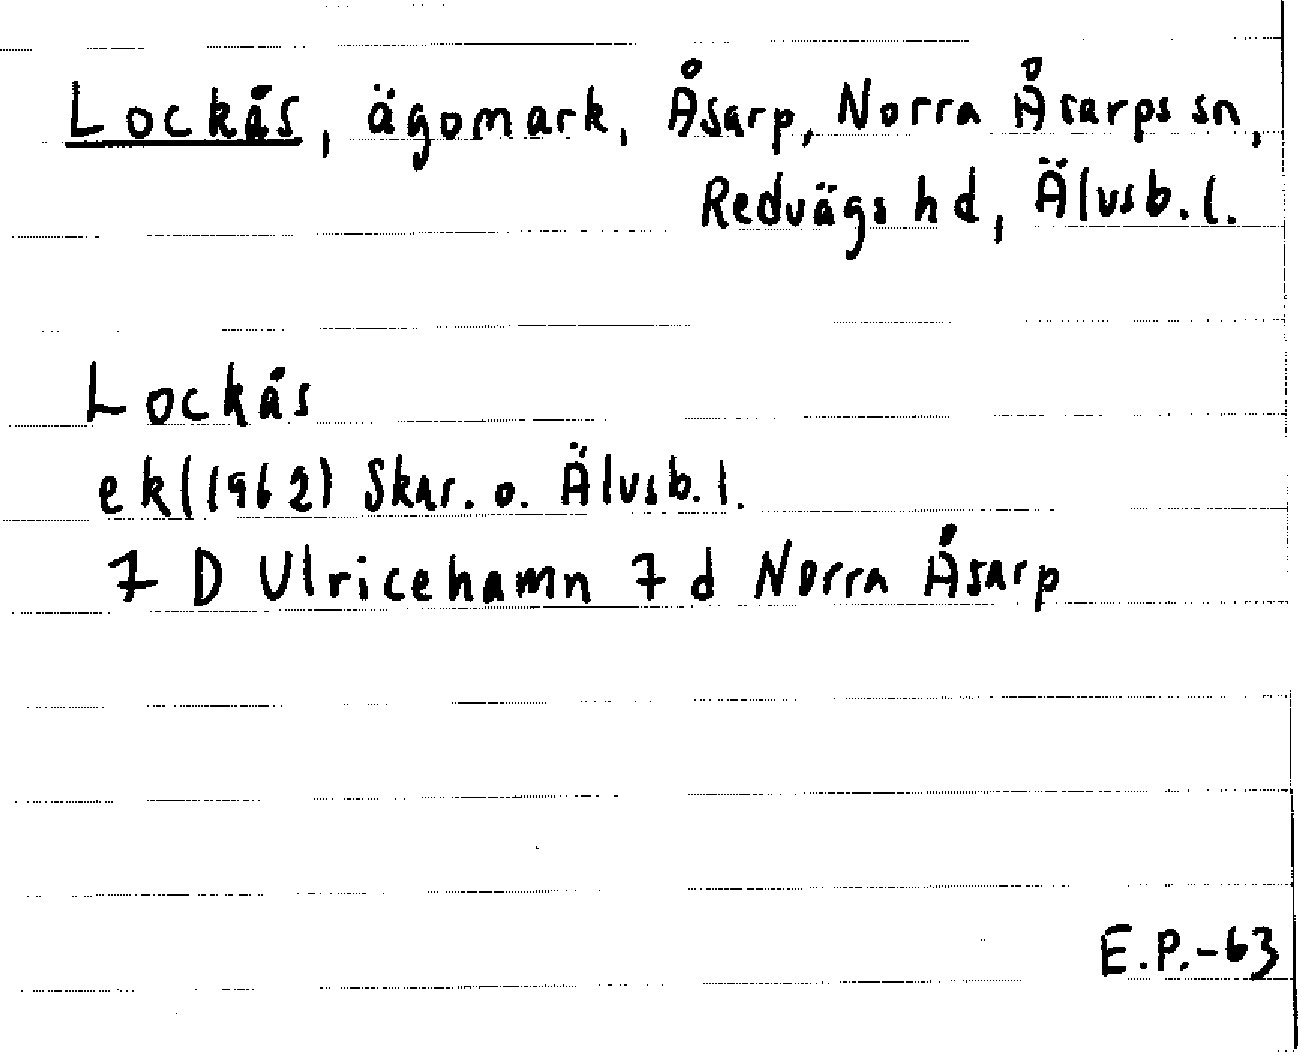 Lockås, ägomark, Åsarp, Norra Åsarps sn,
Redvägs hd, Älvsb. l.
Lockås
ek (1962) Skar. o. Älvsb. l.
7 D Ulricehamn 7 d Norra Åsarp
E.P.-63